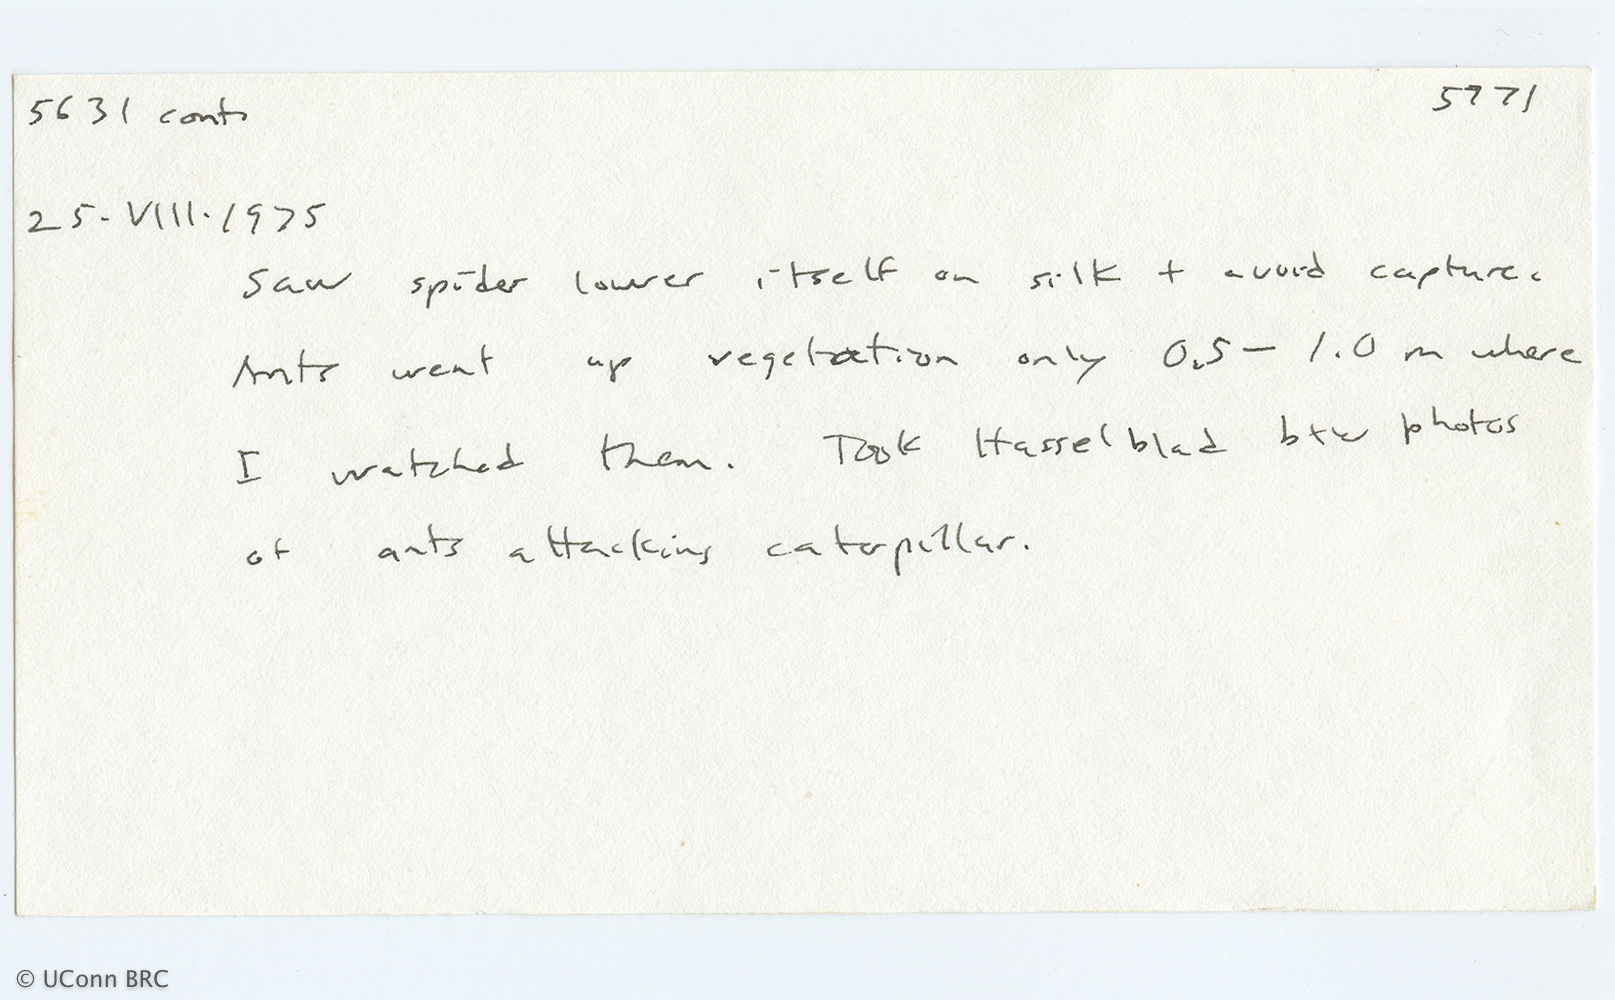 5631 cont.
5771
25-VIII-1975
Saw spider lower itself on silk + avoid capture.
Ants went up vegetation only 0.5 - 1.0 m where
I watched them. Took Hasselblad b+w photos
of ants attacking caterpillar.
© UConn BRC